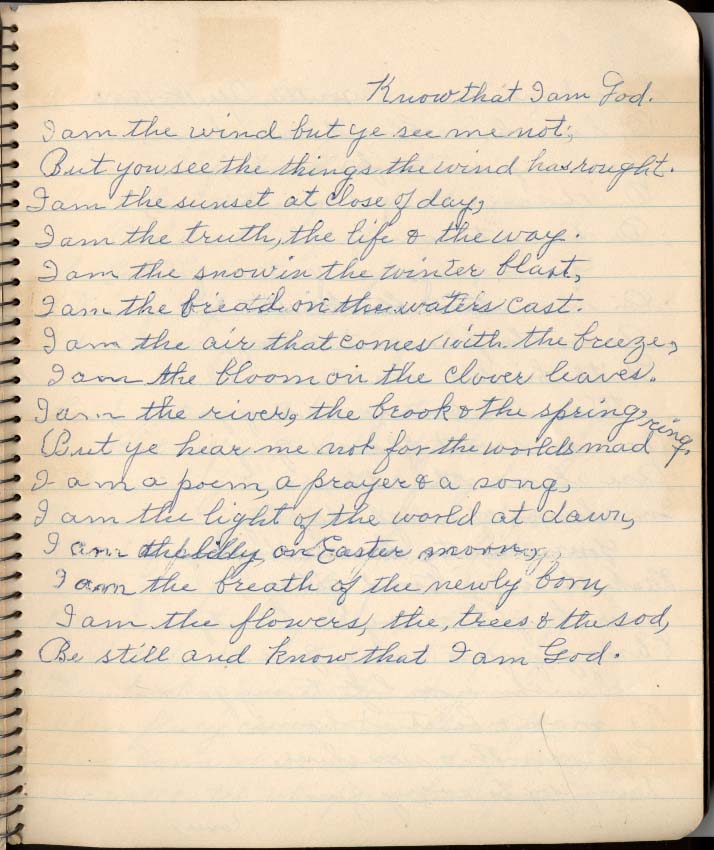 Know that I am God.
I am the wind but ye see me not;
But you see the things the wind has rought.
I am the sunset at close of day,
I am the truth, the life & the way.
I am the snow in the winter blast,
I am the bread on the waters cast.
I am the air that comes with the breeze,
I am the bloom on the clover leaves.
I am the river, the brook & the spring,
But ye hear me not for the worlds mad ring.
I am a poem, a prayer & a song,
I am the light of the world at dawn,
I am the lilly, on Easter morn,
I am the breath of the newly born,
I am the flowers, the, trees & the sod,
Be still and know that I am God.